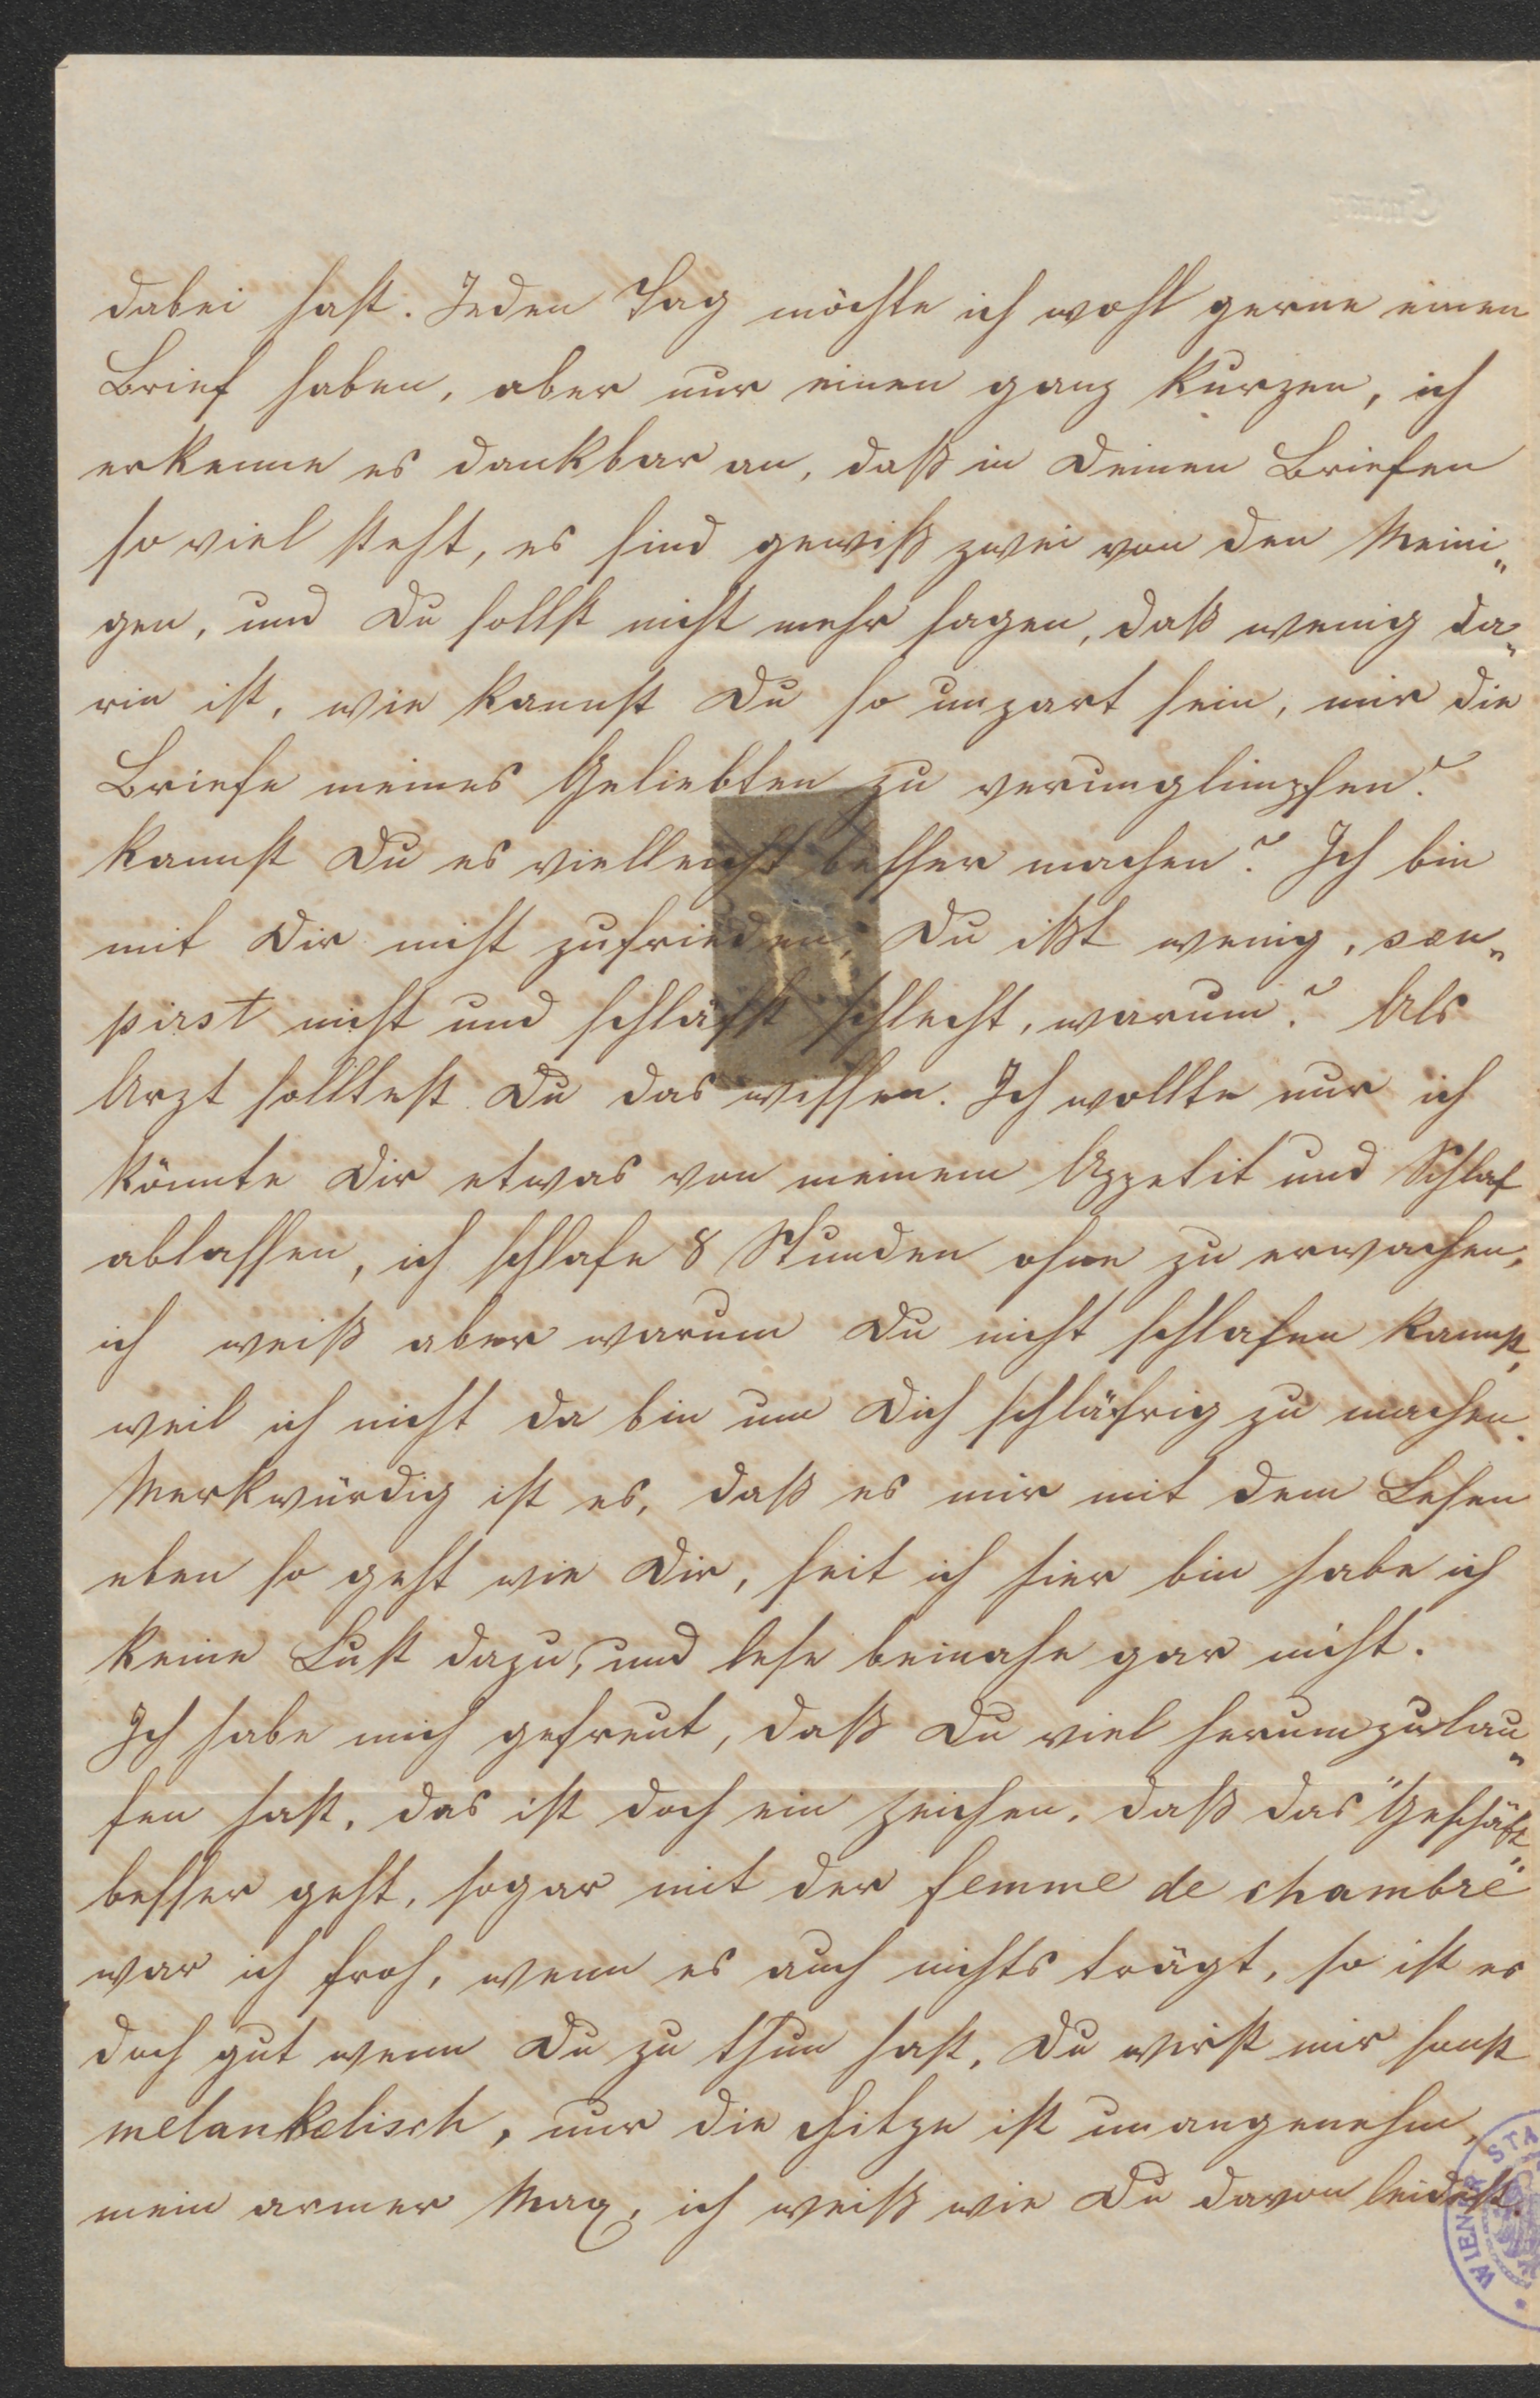 dabei hast. Jeden Tag möchte ich wohl gerne einen
Brief haben, aber nur einen ganz kurzen, ich
erkenne es dankbar an, daß in Deinen Briefen
so viel steht, es sind gewiß zwei von den Meini„
gen, und Du sollst nicht mehr sagen, daß wenig da„
rin ist, wie kannst Du so unzart sein, mir die
Briefe meines Geliebten zu verunglimpfen?
kannst Du es vielleicht besser machen? Ich bin
mit Dir nicht zufrieden, Du ißt wenig, sou„
pirst nicht und schläfst schlecht, warum? Als
Arzt solltest Du das wissen. Ich wollte nur ich
könnte Dir etwas von meinem Appetit und Schlaf
ablassen, ich schlafe 8 Stunden ohne zu erwachen,
ich weiß aber warum Du nicht schlafen kannst,
weil ich nicht da bin um Dich schläfrig zu machen.
Merkwürdig ist es, daß es mir mit dem Lesen
eben so geht wie Dir, seit ich hier bin habe ich
keine Lust dazu, und lese beinahe gar nicht.
Ich habe mich gefreut, daß Du viel herumzulau„
fen hast, das ist doch ein Zeichen, daß das "Geschäft"
besser geht, sogar mit der femme de chambre"
war ich froh, wenn es auch nichts trägt, so ist es
doch gut wenn Du zu thun hast, Du wirst mir sonst
melankolisch, nur die Hitze ist unangenehm,
mein armer Max, ich weiß wie Du davon leidest.
WIENER STA